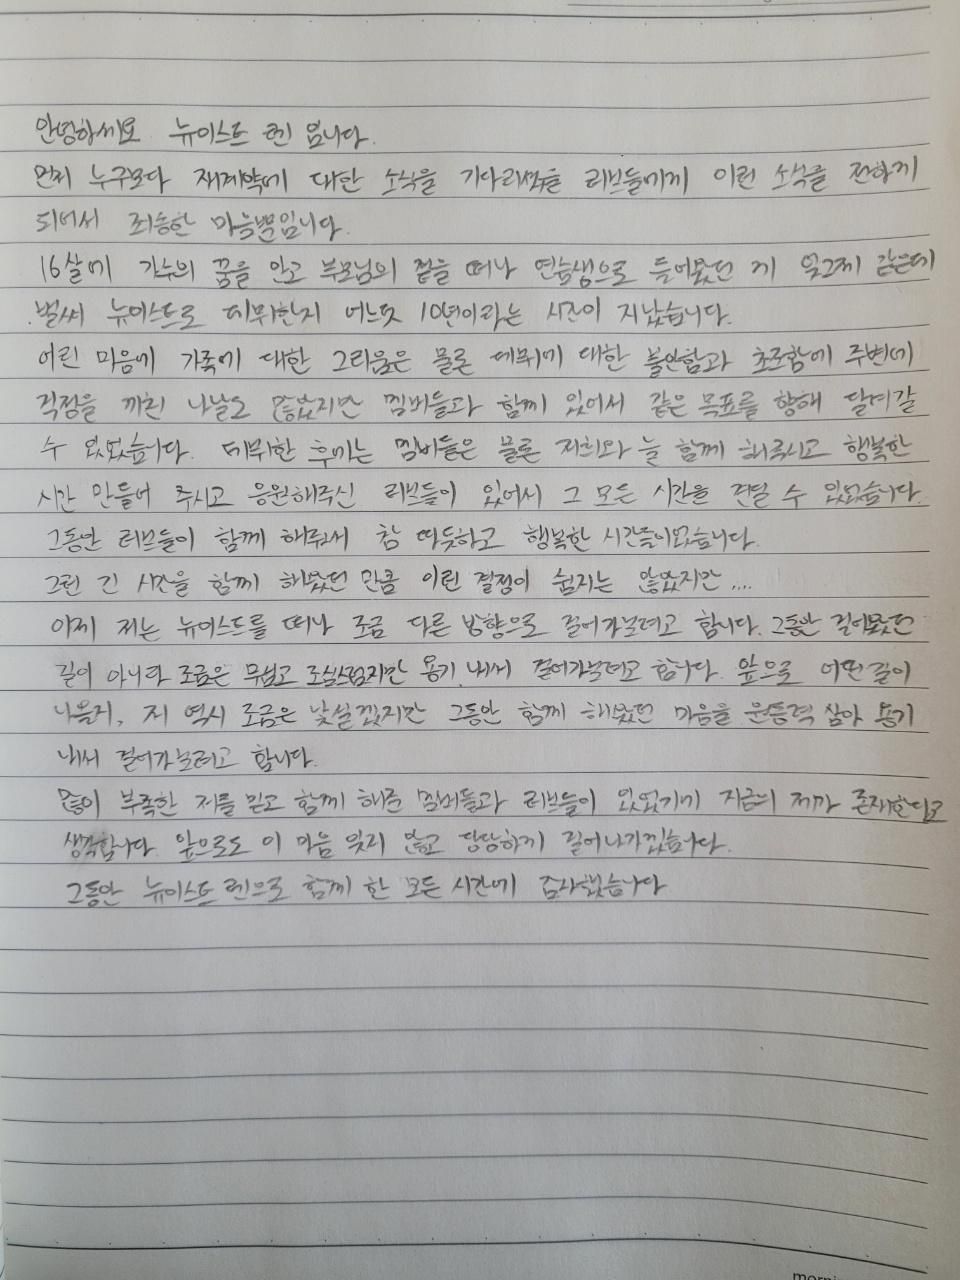 안녕하세요 뉴이스트 렌 입니다.
먼저 누구보다 재계약에 대한 소식을 기다리셨을 러브들에게 이런 소식을 전하게
되어서 죄송한 마음뿐입니다.
16살에 가수의 꿈을 안고 부모님의 곁을 떠나 연습생으로 들어왔던 게 엊그제 같은데
벌써 뉴이스트로 데뷔한지 어느덧 10년이라는 시간이 지났습니다.
어린 마음에 가족에 대한 그리움은 물론 데뷔에 대한 불안함과 초조함에 주변에
걱정을 끼친 나날도 많았지만 멤버들과 함께 있어서 같은 목표를 향해 달려갈
수 있었습니다. 데뷔한 후에는 멤버들은 물론 저희와 늘 함께 해주시고 행복한
시간 만들어 주시고 응원해주신 러브들이 있어서 그 모든 시간을 견딜 수 있었습니다.
그동안 러브들이 함께 해줘서 참 따듯하고 행복한 시간들이었습니다.
그런 긴 시간을 함께 해왔던 만큼 이런 결정이 쉽지는 않았지만....
이제 저는 뉴이스트를 떠나 조금 다른 방향으로 걸어가보려고 합니다. 그동안 걸어왔던
길이 아니라 조금은 무섭고 조심스럽지만 용기 내서 걸어가보려고 합니다. 앞으로 어떤길이
나올지, 저 역시 조금은 낯설겠지만 그동안 함께 해왔던 마음을 원동력 삼아 용기
내서 걸어가보려고 합니다.
많이 부족한 저를 믿고 함께 해준 멤버들과 러브들이 있었기에 지금의 제가 존재한다고
생각합니다. 앞으로도 이 마음 잊지 않고 당당하게 걸어나가겠습니다.
그동안 뉴이스트 렌으로 함께 한 모든 시간에 감사했습니다